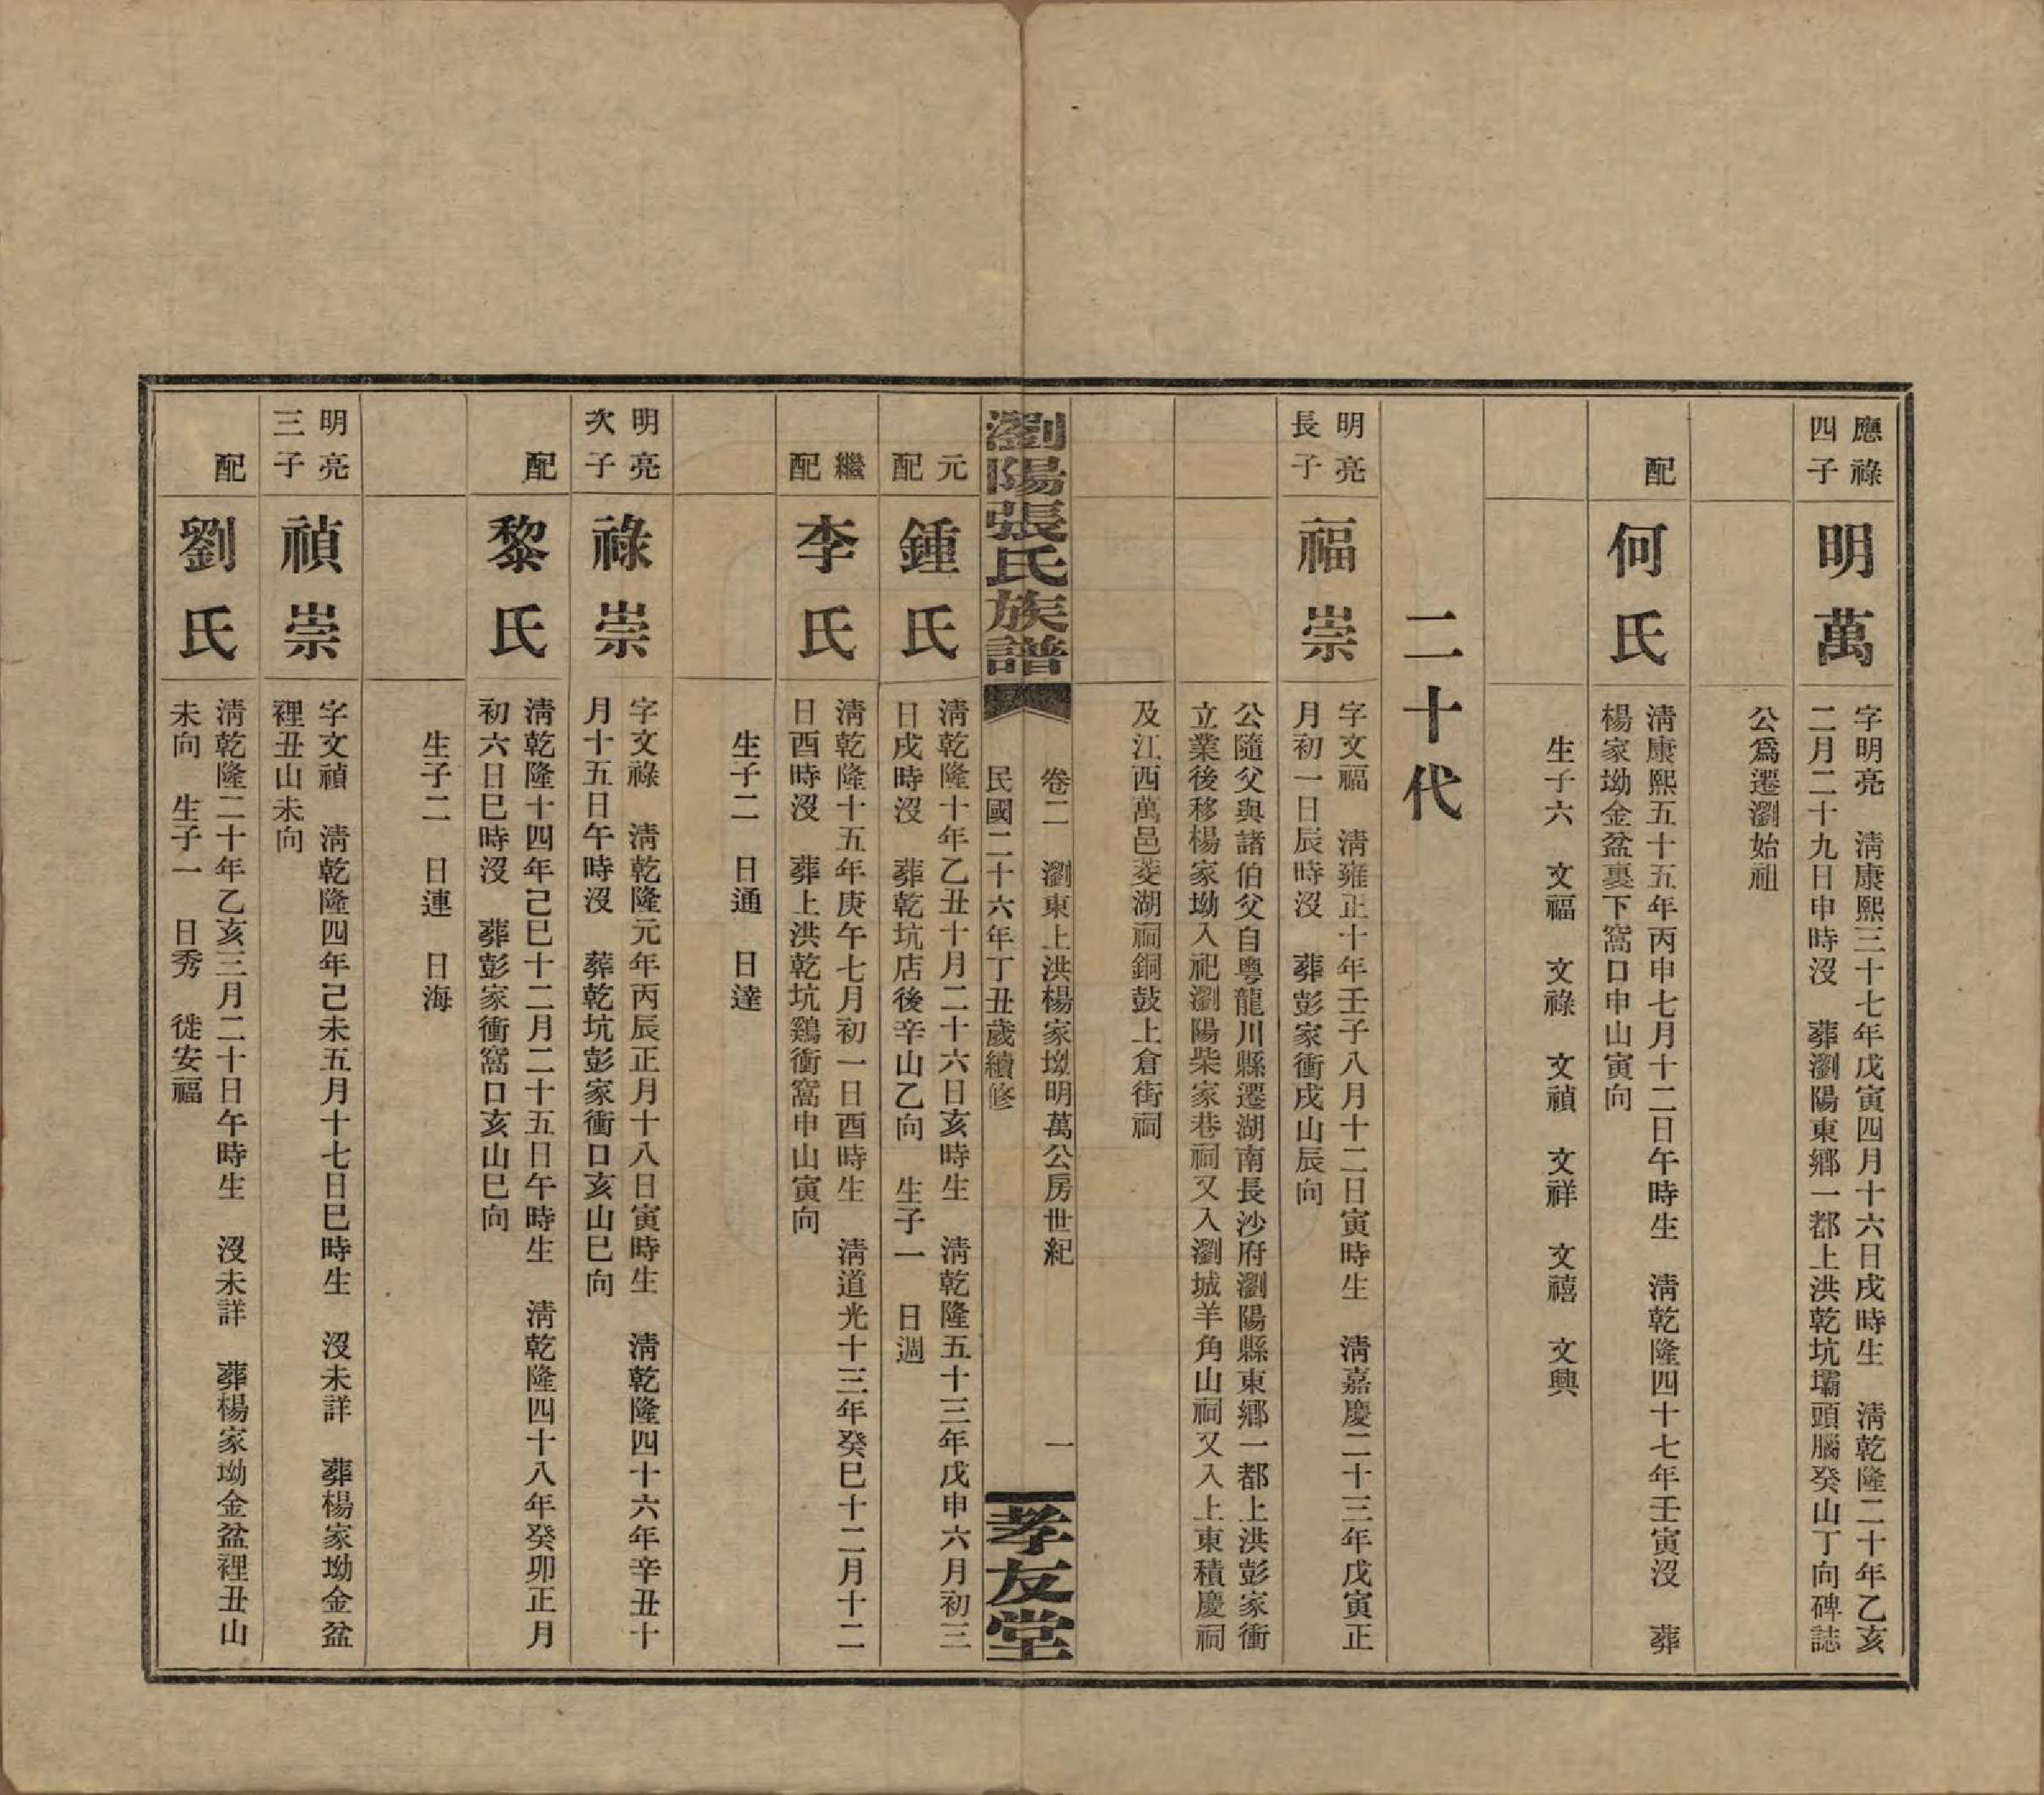 應祿
四子
明萬
字明亮　清康熙三十七年戊寅四月十六日戌時生　清乾隆二十年乙亥
二月二十九日申時沒　葬瀏陽東鄉一都上洪乾坑壩頭腦癸山丁向碑誌
公爲遷瀏始祖
配
何氏
清康熙五十五年丙申七月十二日午時生　清乾隆四十七年壬寅沒　葬
楊家坳金盆裏下窩口申山寅向
生子六　文福　文祿　文禎　文祥　文禧　文興
二十代
明亮
長子
福崇
字文福　清雍正十年壬子八月十二日寅時生　清嘉慶二十三年戊寅正
月初一日辰時沒　葬彭家衝戌山辰向
公隨父與諸伯父自粵龍川縣遷湖南長沙府瀏陽縣東鄉一都上洪彭家衝
立業後移楊家坳入祀瀏陽柴家巷祠又入瀏城羊角山祠又入上東積慶祠
及江西萬邑菱湖祠銅鼓上倉街祠
瀏陽張氏族譜
卷二　瀏東上洪楊家坳明萬公房世紀　一
民國二十六年丁丑歲續修
孝友堂
元
配
鍾氏
清乾隆十年乙丑十月二十六日亥時生　清乾隆五十三年戊申六月初三
日戌時沒　葬乾坑店後辛山乙向　生子一　日週
繼
配
李氏
清乾隆十五年庚午七月初一日酉時生　清道光十三年癸巳十二月十二
日酉時沒　葬上洪乾坑鷄衝窩申山寅向
生子二　日通　日達
明亮
次子
祿崇
字文祿　清乾隆元年丙辰正月十八日寅時生　清乾隆四十六年辛丑十
月十五日午時沒　葬乾坑彭家衝口亥山巳向
配
黎氏
清乾隆十四年己巳十二月二十五日午時生　清乾隆四十八年癸卯正月
初六日巳時沒　葬彭家衝窩口亥山巳向
生子二　日連　日海
明亮
三子
禎崇
字文禎　清乾隆四年己未五月十七日巳時生　沒未詳　葬楊家坳金盆
裡丑山未向
配
劉氏
清乾隆二十年乙亥三月二十日午時生　沒未詳　葬楊家坳金盆裡丑山
未向　生子一　日秀　徙安福